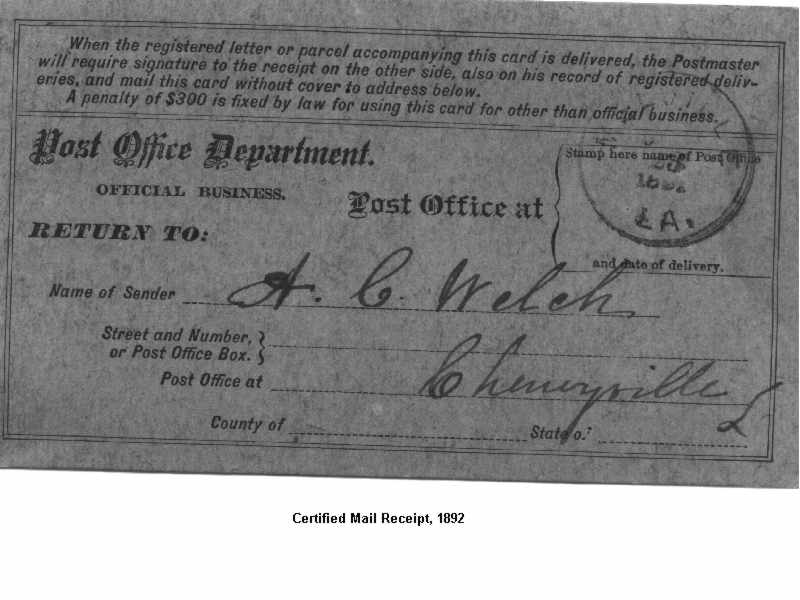 When the registered letter or parcel accompanying this card is delivered, the Postmaster
will require signature to the receipt on the other side, also on his record of registered deliv-
eries, and mail this card without cover to address below.
A penalty of $300 is fixed by law for using this card for other than official business.
Post Office Department.
OFFICIAL BUSINESS.
RETURN TO:
Post Office at
Stamp here name of Post Office
LA.
and date of delivery.
Name of Sender A. C. Welch
Street and Number,
or Post Office Box.
Post Office at Cheneyville
County of
State of:
Certified Mail Receipt, 1892